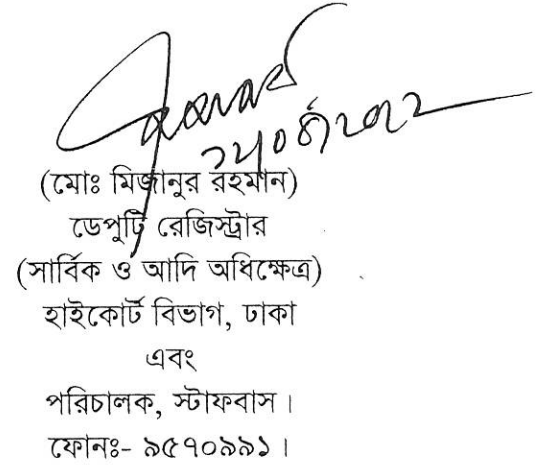 (মোঃ মিজানুর রহমান)
ডেপুটি রেজিস্ট্রার
(সার্বিক ও আদি অধিক্ষেত্র)
হাইকোর্ট বিভাগ, ঢাকা
এবং
পরিচালক, স্টাফবাস।
ফোনঃ- ৯৫৭০৯৯১।